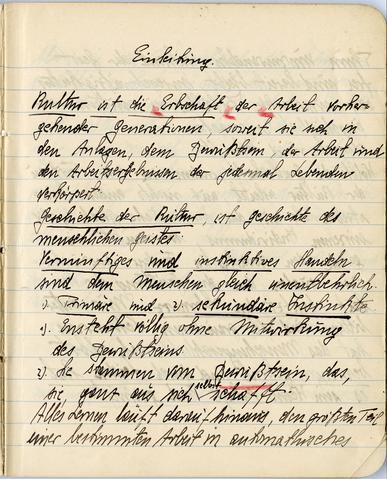 Einleitung.
Kultur ist die Erbschaft der Arbeit vorher-
gehender Generationen, soweit sie sich in
den Anlagen, dem Bewußtsein, der Arbeit und
den Arbeitsergebnissen der jedesmal Lebenden
verkörpert.
Geschichte der Kultur, ist geschichte des
menschlichen geistes.
Vernünftiges und instinktives Handeln
sind dem Menschen gleich unentbehrlich.
1). Primäre und 2). sekundäre Instinkte
1). Ensteht völlig ohne Mitwirkung
des Bewußtseins.
2). Sie stammen vom Bewußtsein, das,
sie, ganz aus sich selbst schafft.
Alles lernen läuft darauf hinaus, den größten Teil
einer bestimmten Arbeit in automathisches